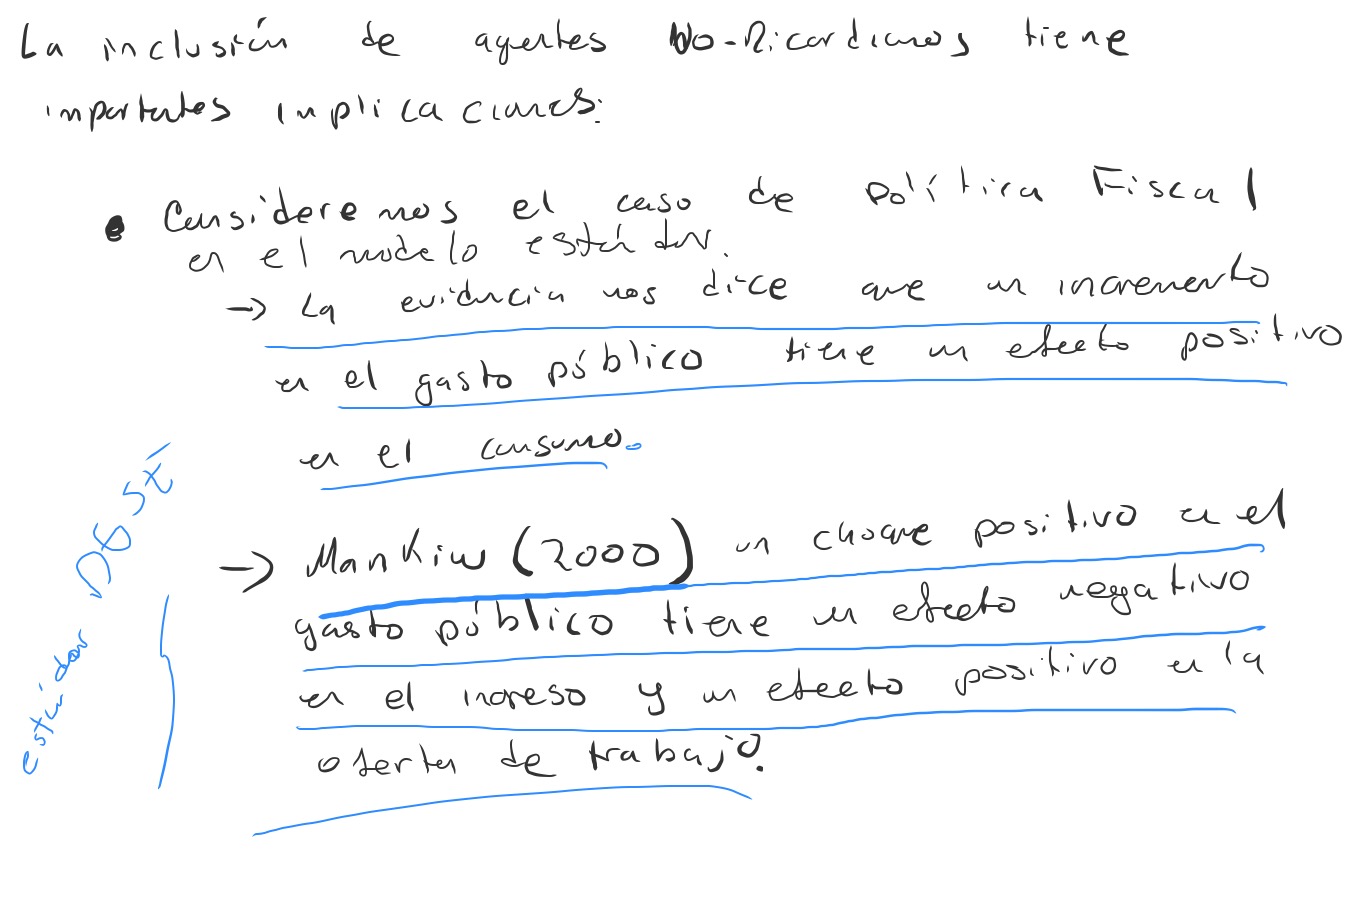 La inclusión de agentes No-Ricardianos tiene
importantes implicaciones:
• Consideremos el caso de política Fiscal
en el modelo estándar.
→ La evidencia nos dice que un incremento
en el gasto público tiene un efecto positivo
en el consumo.
→ Mankiw (2000) un choque positivo en el
gasto público tiene un efecto negativo
en el ingreso y un efecto positivo en la
oferta de trabajo.
estándar DGSE